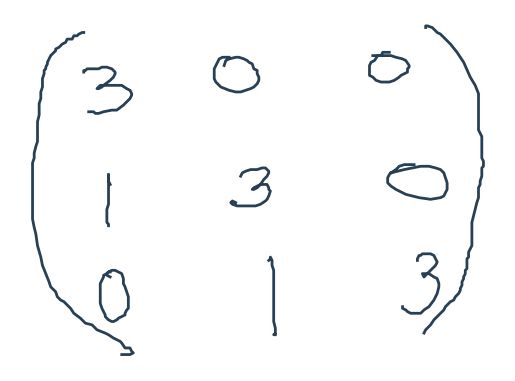 3 0 0
1 3 0
0 1 3